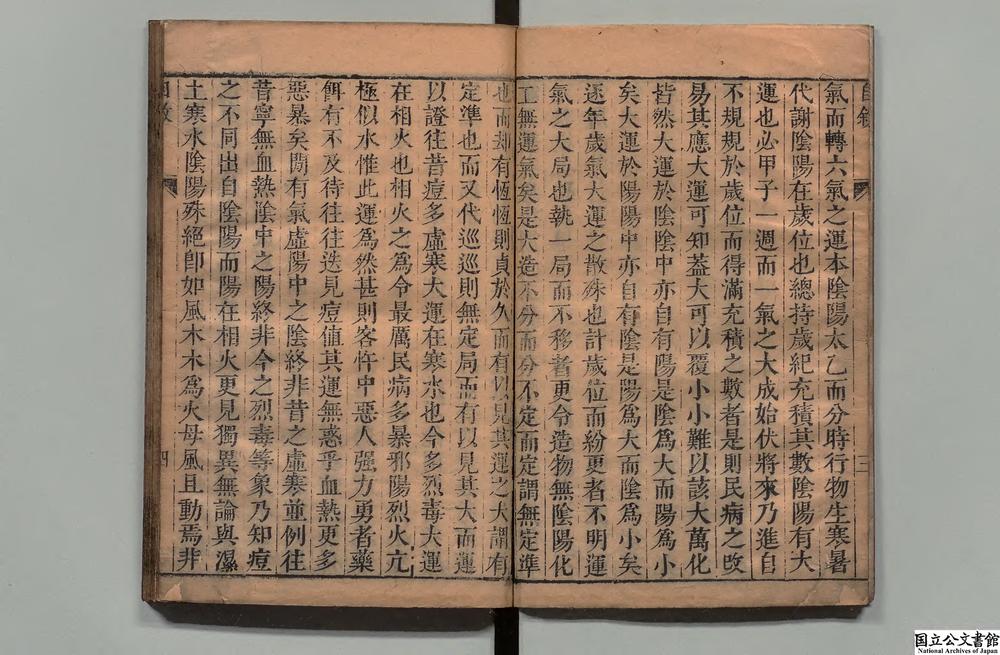 氣而轉六氣之運本陰陽太乙而分時行物生寒暑
代謝陰陽在歲位也總持歲紀充積其數陰陽有大
運也必甲子一週而一氣之大成始伏將來乃進自
不規規於歲位而得滿充積之數者是則民病之改
易其應大運可知蓋大可以覆小小難以該大萬化
皆然大運於陰陰中亦自有陽是陰爲大而陽爲小
矣大運於陽陽中亦自有陰是陽爲大而陰爲小矣
逐年歲氣大運之散殊也計歲位而紛更者不明運
氣之大局也執一局而不移者更令造物無陰陽化
工無運氣矣是大造不分而分不定而定謂無定準
也而却有恆恆則貞於久而有以見其運之大謂有
定準也而又代巡巡則無定局而有以見其大而運
以證往昔痘多虛寒大運在寒水也今多烈毒大運
在相火也相火之爲令最厲民病多暴邪陽烈火亢
極似水惟此運爲然甚則客忤中惡人强力勇者藥
餌有不及待往往迭見痘值其運無惑乎血熱更多
惡暴矣間有氣虛陽中之陰終非昔之虛寒並例往
昔寧無血熱陰中之陽終非今之烈毒等象乃知痘
之不同出自陰陽而陽在相火更見獨異無論與濕
土寒水陰陽殊絕卽如風木木爲火母風且動焉非
四
国立公文書館
National Archives of Japan